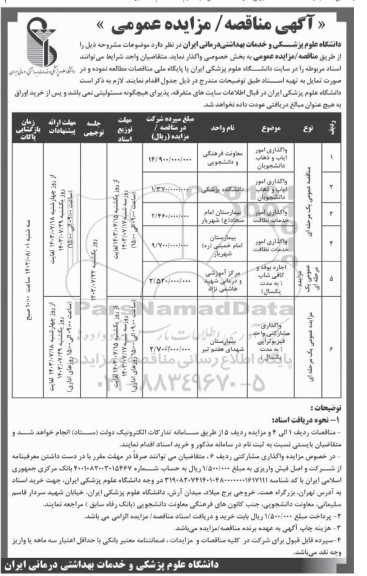 « آگهی مناقصه/ مزایده عمومی »
دانشگاه علوم پزشکی و خدمات بهداشتی درمانی ایران در نظر دارد موضوعات مشروحه ذیل را
از طریق مناقصه/مزایده عمومی به بخش خصوصی واگذار نماید. متقاضیان واجد شرایط می توانند
اسناد مربوطه را در سایت دانشگاه علوم پزشکی ایران یا پایگاه ملی مناقصات مطالعه نموده و در
صورت تمایل به تهیه اسناد طبق توضیحات مندرج در ذیل جدول اقدام نمایند. لازم به ذکر است
دانشگاه علوم پزشکی ایران در قبال اطلاعات سایت های متفرقه، پذیرای هیچگونه مسئولیتی نمی باشد و پس از خرید اوراق
به هیچ عنوان مبالغ دریافتی عودت داده نخواهد شد.
ردیف نوع موضوع نام واحد مبلغ سپرده شرکت در مناقصه / مزایده (ریال) مهلت توزیع اسناد جلسه توجیهی مهلت ارائه پیشنهادات زمان بازگشایی پاکات
۱ واگذاری امور ایاب و ذهاب دانشجویان معاونت فرهنگی و دانشجویی ۱۴/۹۰۰/۰۰۰/۰۰۰
۲ واگذاری امور ایاب و ذهاب دانشجویان دانشکده پزشکی ۱/۳۷۰/۰۰۰/۰۰۰
۳ واگذاری امور خدمات نظافت بیمارستان امام سجاد(ع) شهریار ۲/۴۶۰/۰۰۰/۰۰۰
۴ واگذاری امور خدمات نظافت بیمارستان امام خمینی (ره) شهریار ۹/۷۰۰/۰۰۰/۰۰۰
مناقصه عمومی یک مرحله ای
۵ مزایده عمومی یک مرحله ای اجاره بوفه و کافی شاپ ( به مدت یکسال) مرکز آموزشی و درمانی شهید هاشمی نژاد ۲/۵۲۰/۰۰۰/۰۰۰
۶ مزایده عمومی یک مرحله ای واگذاری مشارکتی واحد فیزیوتراپی ( به مدت یکسال) بیمارستان شهدای هفتم تیر ۲/۷۰۰/۰۰۰/۰۰۰
سه شنبه ۱۴۰۳/۰۸/۰۱ ساعت ۱۰:۰۰ صبح
ParsNamadData
۰۲۱-۸۸۳۴۹۶۷۰-۵
توضیحات :
۱- نحوه دریافت اسناد:
- مناقصات ردیف ۱ الی ۴ و مزایده ردیف ۵ از طریق سامانه تدارکات الکترونیک دولت (ستاد) انجام خواهد شد و
متقاضیان بایستی نسبت به ثبت نام در سامانه مذکور و خرید اسناد اقدام نمایند.
- در خصوص مزایده واگذاری مشارکتی ردیف ۶، متقاضیان می توانند صرفاً در مهلت مقرر با در دست داشتن معرفینامه
از شرکت و اصل فیش واریزی به مبلغ ۱/۵۰۰/۰۰۰ ریال به حساب شماره ۴۰۰۱۰۸۲۰۰۳۰۱۵۴۶۷ بانک مرکزی جمهوری
اسلامی ایران با کد شناسه ۳۱۹۰۸۲۰۷۴۱۴۰۱۰۴۸۰۰۰۰۰۰۰۱۶۱۷۱۱۱ در وجه دانشگاه علوم پزشکی ایران، جهت خرید اسناد
به آدرس تهران، بزرگراه همت، خروجی برج میلاد، میدان آرش، دانشگاه علوم پزشکی ایران، خیابان شهید سردار قاسم
سلیمانی، معاونت دانشجویی، جنب کانون های فرهنگی معاونت دانشجویی (بانک رفاه سابق ) مراجعه نمایند.
۲- پرداخت مبلغ ۱/۵۰۰/۰۰۰ ریال بابت خرید و دریافت اسناد مناقصه/ مزایده الزامی می باشد.
۳- هزینه چاپ آگهی به عهده برنده مناقصه/مزایده می‌باشد.
۴- سپرده قابل قبول برای شرکت در کلیه مناقصات و مزایدات ، ضمانتنامه معتبر بانکی با حداقل اعتبار سه ماهه یا واریز
وجه نقد می‌باشد.
دانشگاه علوم پزشکی و خدمات بهداشتی درمانی ایران